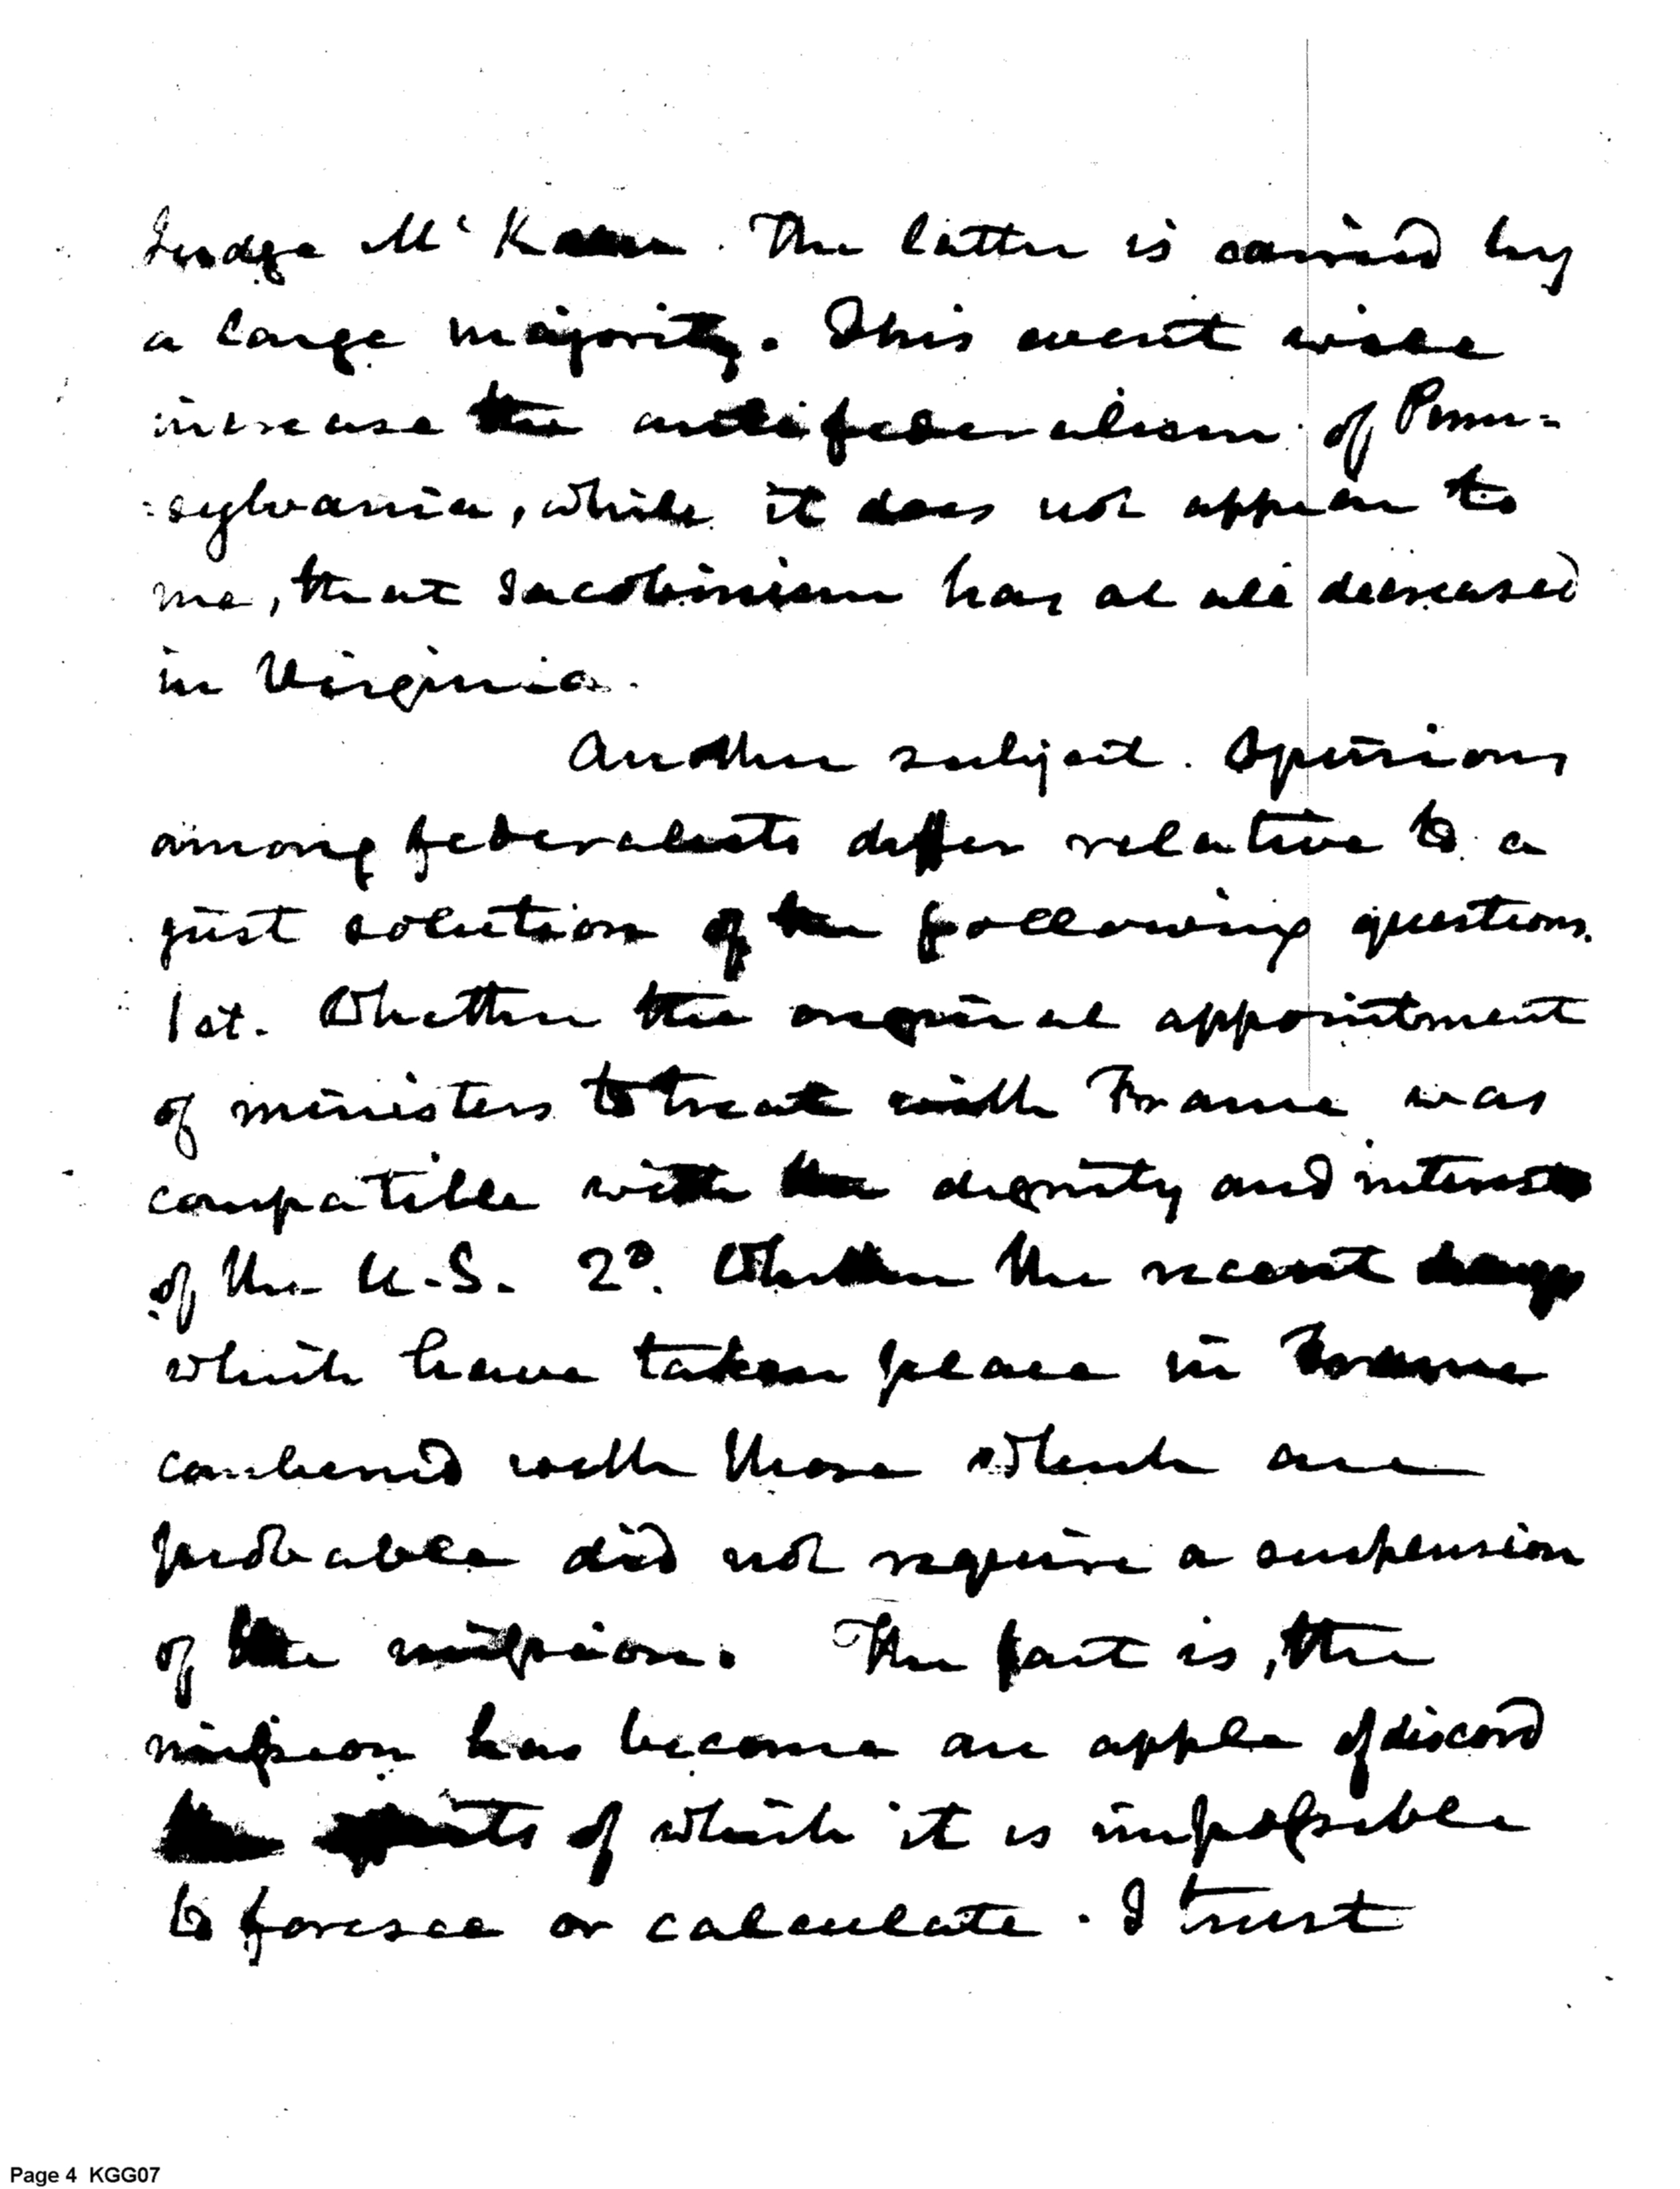 Judge Mc Kean. The latter is carried by
a large majority. This event will
increase the antifederalism of Penn=
=sylvania, while it does not appear to
me, that Jacobinism has at all decreased
in Virginia.
Another subject. Opinions
among federalists differ relative to a
just solution of the following questions.
1st. Whether the original appointment
of ministers to treat with France was
compatible with the dignity and interests
of the U.S. 2d. Whether the recent
which have taken place in France
combined with those which are
probable did not require a suspension
of the mission. The fact is, the
mission has become an apple of discord
the of which it is impossible
to foresee or calculate. I trust
Page 4 KGG07